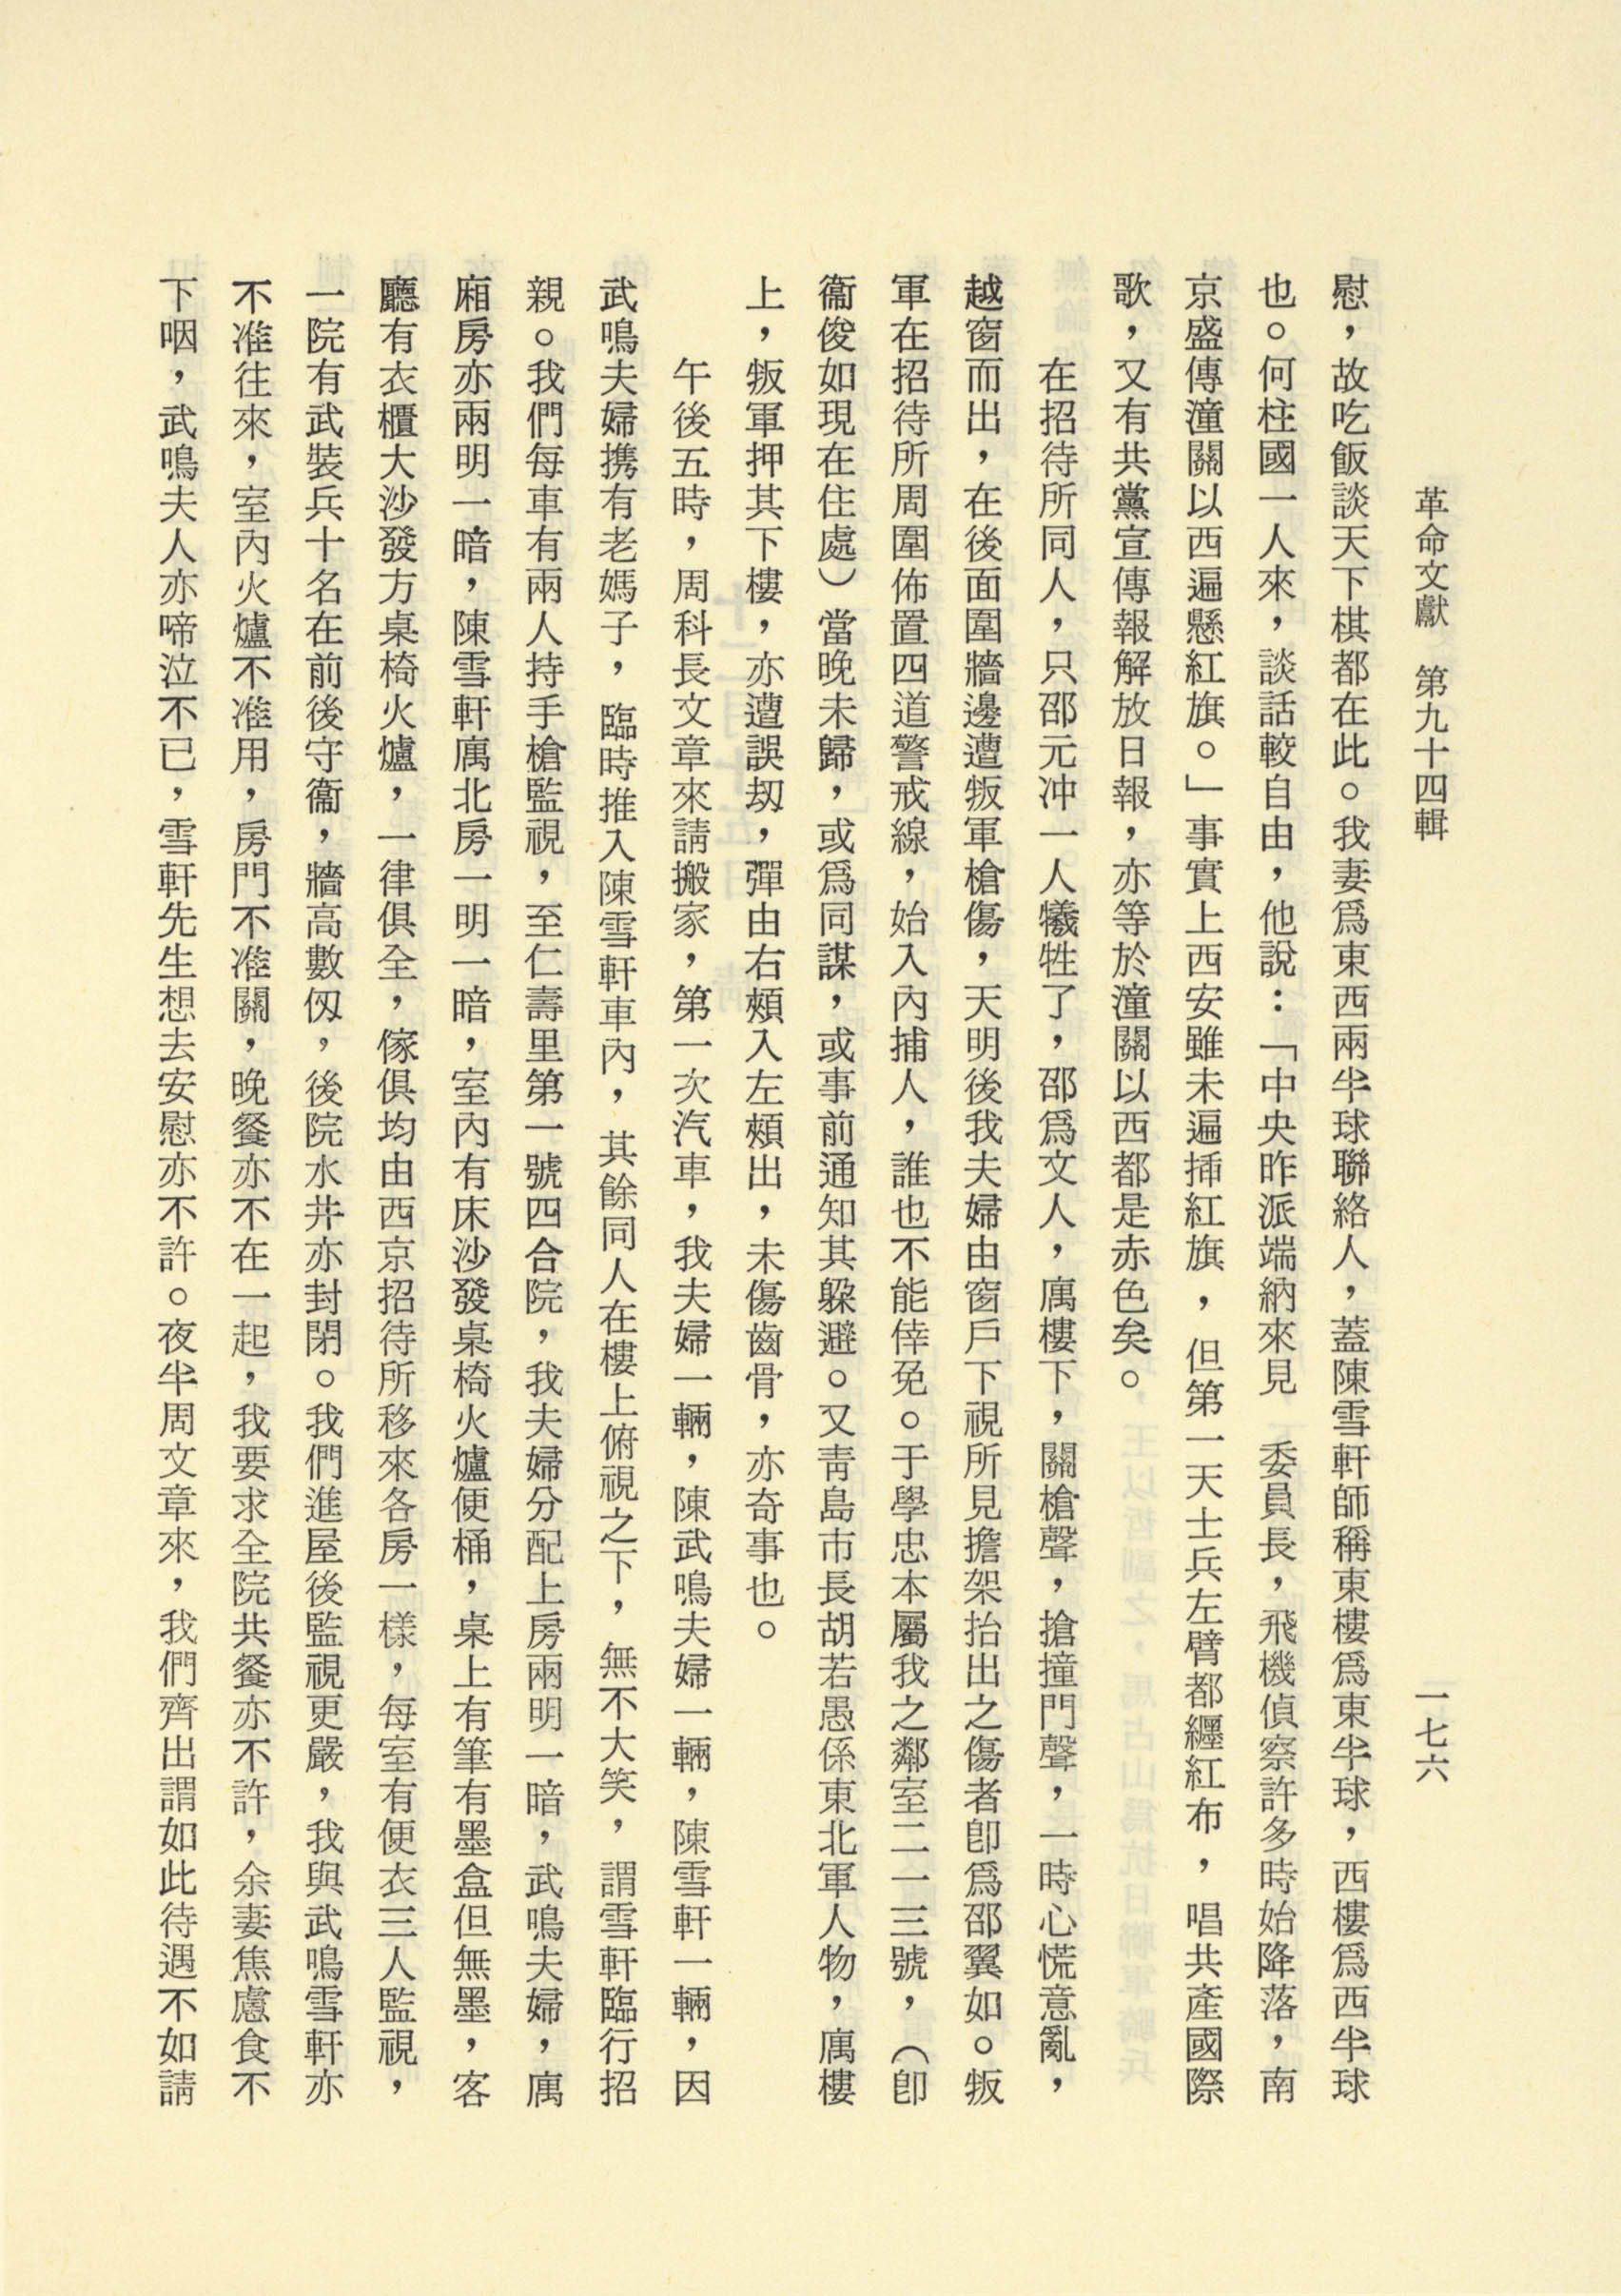 革命文獻　第九十四輯　一七六
慰，故吃飯談天下棋都在此。我妻爲東西兩半球聯絡人，蓋陳雪軒師稱東樓爲東半球，西樓爲西半球
也。何柱國一人來，談話較自由，他說：「中央昨派端納來見　委員長，飛機偵察許多時始降落，南
京盛傳潼關以西遍懸紅旗。」事實上西安雖未遍揷紅旗，但第一天士兵左臂都纏紅布，唱共產國際
歌，又有共黨宣傳報解放日報，亦等於潼關以西都是赤色矣。
在招待所同人，只邵元冲一人犧牲了，邵爲文人，寓樓下，關槍聲，搶撞門聲，一時心慌意亂，
越窗而出，在後面圍牆邊遭叛軍槍傷，天明後我夫婦由窗戶下視所見擔架抬出之傷者卽爲邵翼如。叛
軍在招待所周圍佈置四道警戒線，始入內捕人，誰也不能倖免。于學忠本屬我之鄰室二一三號，（卽
衞俊如現在住處）當晚未歸，或爲同謀，或事前通知其躲避。又靑島市長胡若愚係東北軍人物，寓樓
上，叛軍押其下樓，亦遭誤刧，彈由右頰入左頰出，未傷齒骨，亦奇事也。
午後五時，周科長文章來請搬家，第一次汽車，我夫婦一輛，陳武鳴夫婦一輛，陳雪軒一輛，因
武鳴夫婦携有老媽子，臨時推入陳雪軒車內，其餘同人在樓上俯視之下，無不大笑，謂雪軒臨行招
親。我們每車有兩人持手槍監視，至仁壽里第一號四合院，我夫婦分配上房兩明一暗，武鳴夫婦，寓
廂房亦兩明一暗，陳雪軒寓北房一明一暗，室內有床沙發桌椅火爐便桶，桌上有筆有墨盒但無墨，客
廳有衣櫃大沙發方桌椅火爐，一律俱全，傢俱均由西京招待所移來各房一樣，每室有便衣三人監視，
一院有武裝兵十名在前後守衞，牆高數仭，後院水井亦封閉。我們進屋後監視更嚴，我與武鳴雪軒亦
不准往來，室內火爐不准用，房門不准關，晚餐亦不在一起，我要求全院共餐亦不許，余妻焦慮食不
下咽，武鳴夫人亦啼泣不已，雪軒先生想去安慰亦不許。夜半周文章來，我們齊出謂如此待遇不如請